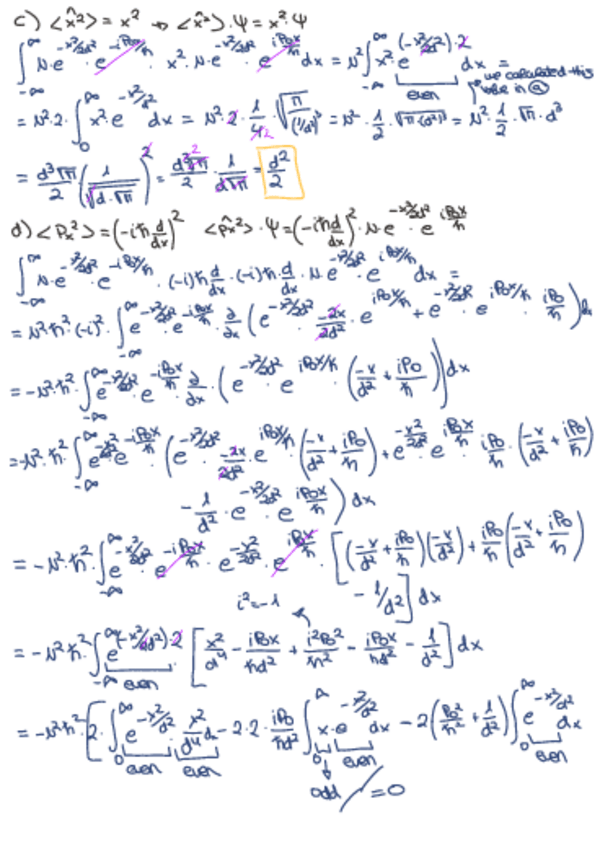 c) <x̂²> = x² → <x̂²>·Ψ = x²·Ψ
∫_{-∞}^{∞} N·e^{-x²/2d²}·e^{-iP₀x/ħ}·x²·N·e^{-x²/2d²}·e^{iP₀x/ħ} dx = N²∫_{-∞}^{∞} x²·e^{(-x²/2d²)·2} dx =
even
we calculated this before in (a)
= N²·2·∫_0^∞ x²·e^{-x²/d²} dx = N²·2·1/4·√(π/(1/d²)³) = N²·1/2·√(π·(d²)³) = N²·1/2·√π·d³
= d³√π/2 (1/√(d·√π))² = d³√π/2 · 1/(d√π) = d²/2
d) <Px²> = (-iħ d/dx)² <p̂x²>·Ψ = (-iħ d/dx)²·N·e^{-x²/2d²}·e^{iP₀x/ħ}
∫_{-∞}^{∞} N·e^{-x²/2d²}·e^{-iP₀x/ħ}·(-i)ħ d/dx·(-i)ħ d/dx·N·e^{-x²/2d²}·e^{iP₀x/ħ} dx =
= N²ħ²·(-i)²·∫_{-∞}^{∞} e^{-x²/2d²}·e^{-iP₀x/ħ}·∂/∂x (e^{-x²/2d²}·-2x/2d²·e^{iP₀x/ħ} + e^{-x²/2d²}·e^{iP₀x/ħ}·iP₀/ħ) dx
= -N²·ħ²·∫_{-∞}^{∞} e^{-x²/2d²}·e^{-iP₀x/ħ}·∂/∂x·(e^{-x²/2d²}·e^{iP₀x/ħ}·(-x/d² + iP₀/ħ)) dx
= -N²·ħ²·∫_{-∞}^{∞} e^{-x²/2d²}·e^{-iP₀x/ħ}·(e^{-x²/2d²}·-2x/2d²·e^{iP₀x/ħ}·(-x/d² + iP₀/ħ) + e^{-x²/2d²}·e^{iP₀x/ħ}·iP₀/ħ·(-x/d² + iP₀/ħ)
- 1/d²·e^{-x²/2d²}·e^{iP₀x/ħ}) dx
= -N²·ħ²·∫_{-∞}^{∞} e^{-x²/2d²}·e^{-iP₀x/ħ}·e^{-x²/2d²}·e^{iP₀x/ħ}·[(-x/d² + iP₀/ħ)(-x/d²) + iP₀/ħ(-x/d² + iP₀/ħ)
- 1/d²] dx
i² = -1
= -N²·ħ²·∫_{-∞}^{∞} e^{(-x²/2d²)·2}·[x²/d⁴ - iP₀x/ħd² + i²P₀²/ħ² - iP₀x/ħd² - 1/d²] dx
even
= -N²ħ²·[2·∫_0^∞ e^{-x²/d²}·x²/d⁴ dx - 2·2·iP₀/ħd² ∫_0^∞ x·e^{-x²/d²} dx - 2(P₀²/ħ² + 1/d²)∫_0^∞ e^{-x²/d²} dx
even even even even
odd = 0